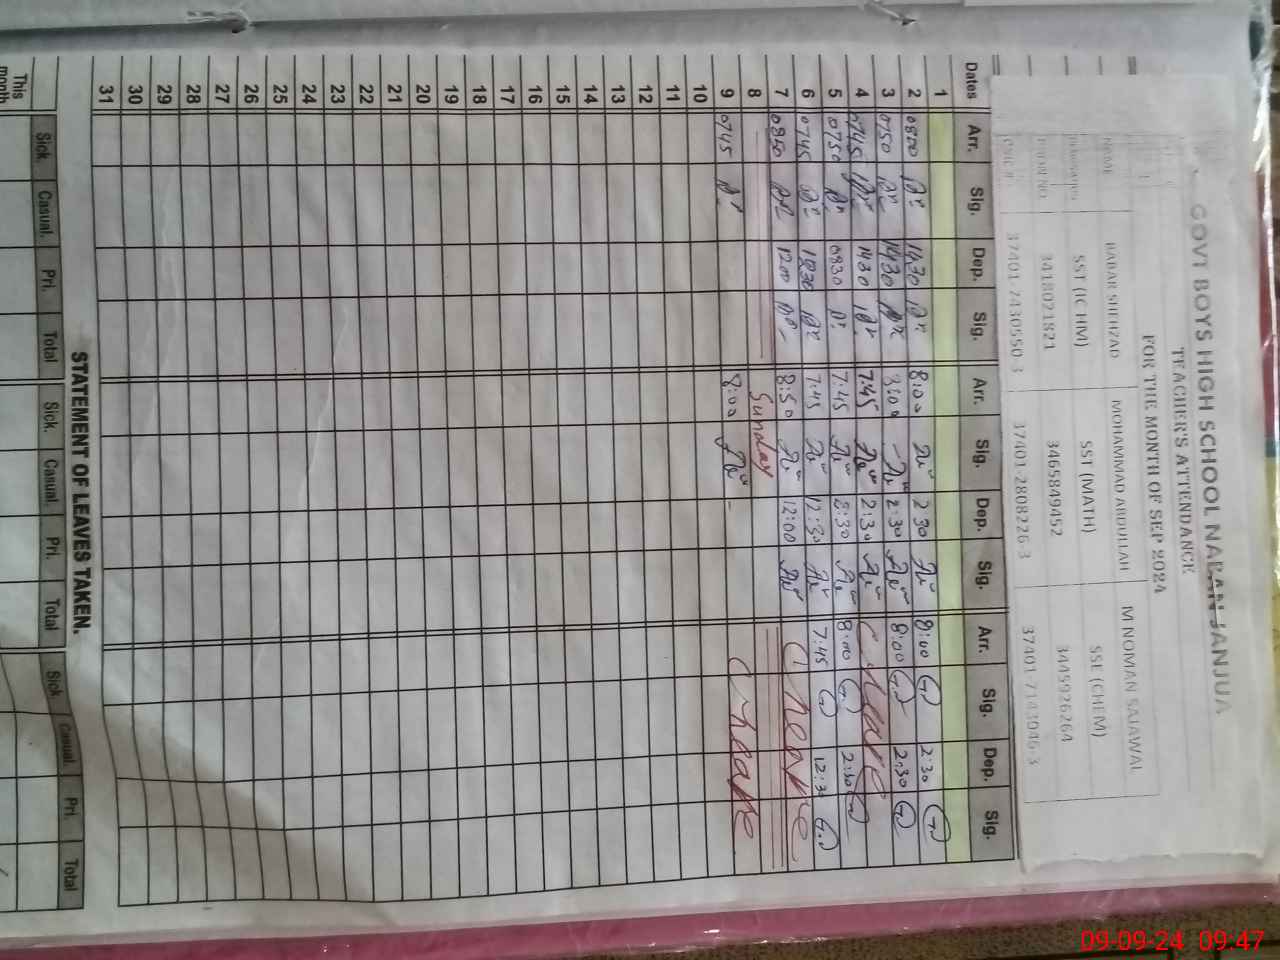 GOVT BOYS HIGH SCHOOL NABAN JANJUA
TEACHER'S ATTENDANCE
FOR THE MONTH OF SEP 2024
NAME BABAR SHEHZAD MOHAMMAD ABDULLAH M NOMAN SAJAWAL
SST (MATH) SSE (CHEM)
3418021821 3465849452 3445926264
CNIC # 37401-7430550-3 37401-2808226-3 37401-7143046-3
Dates Arr. Sig. Dep. Sig. Arr. Sig. Dep. Sig. Arr. Sig. Dep. Sig.
1
2 0800 1430 8:00 2 30 8:00 2:30
3 0750 1430 8:00 2:30 8:00 2:30
4 0745 1430 7:45 2:30
5 0750 0830 7:45 8:00 2:30
6 0745 1230 7:45 12:30 7:45 12:30
7 0850 1200 8:50 12:00
8 Sunday
9 0745 8:00
10
11
12
13
14
15
16
17
18
19
20
21
22
23
24
25
26
27
28
29
30
31
STATEMENT OF LEAVES TAKEN.
Sick. Casual. Pri. Total Sick. Casual. Pri. Total Sick Casual Pri. Total
This month
09-09-24 09:47